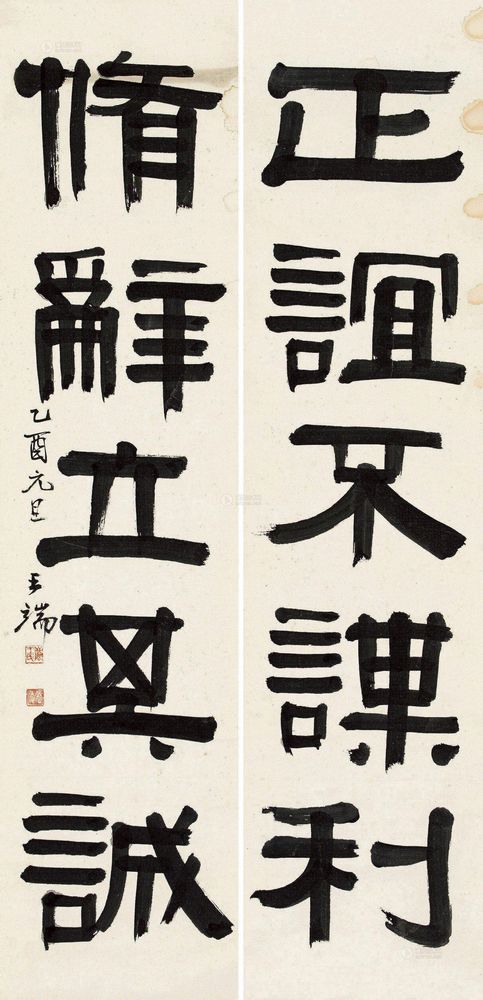 正誼不謀利
脩辭立其誠
乙酉元旦 王端